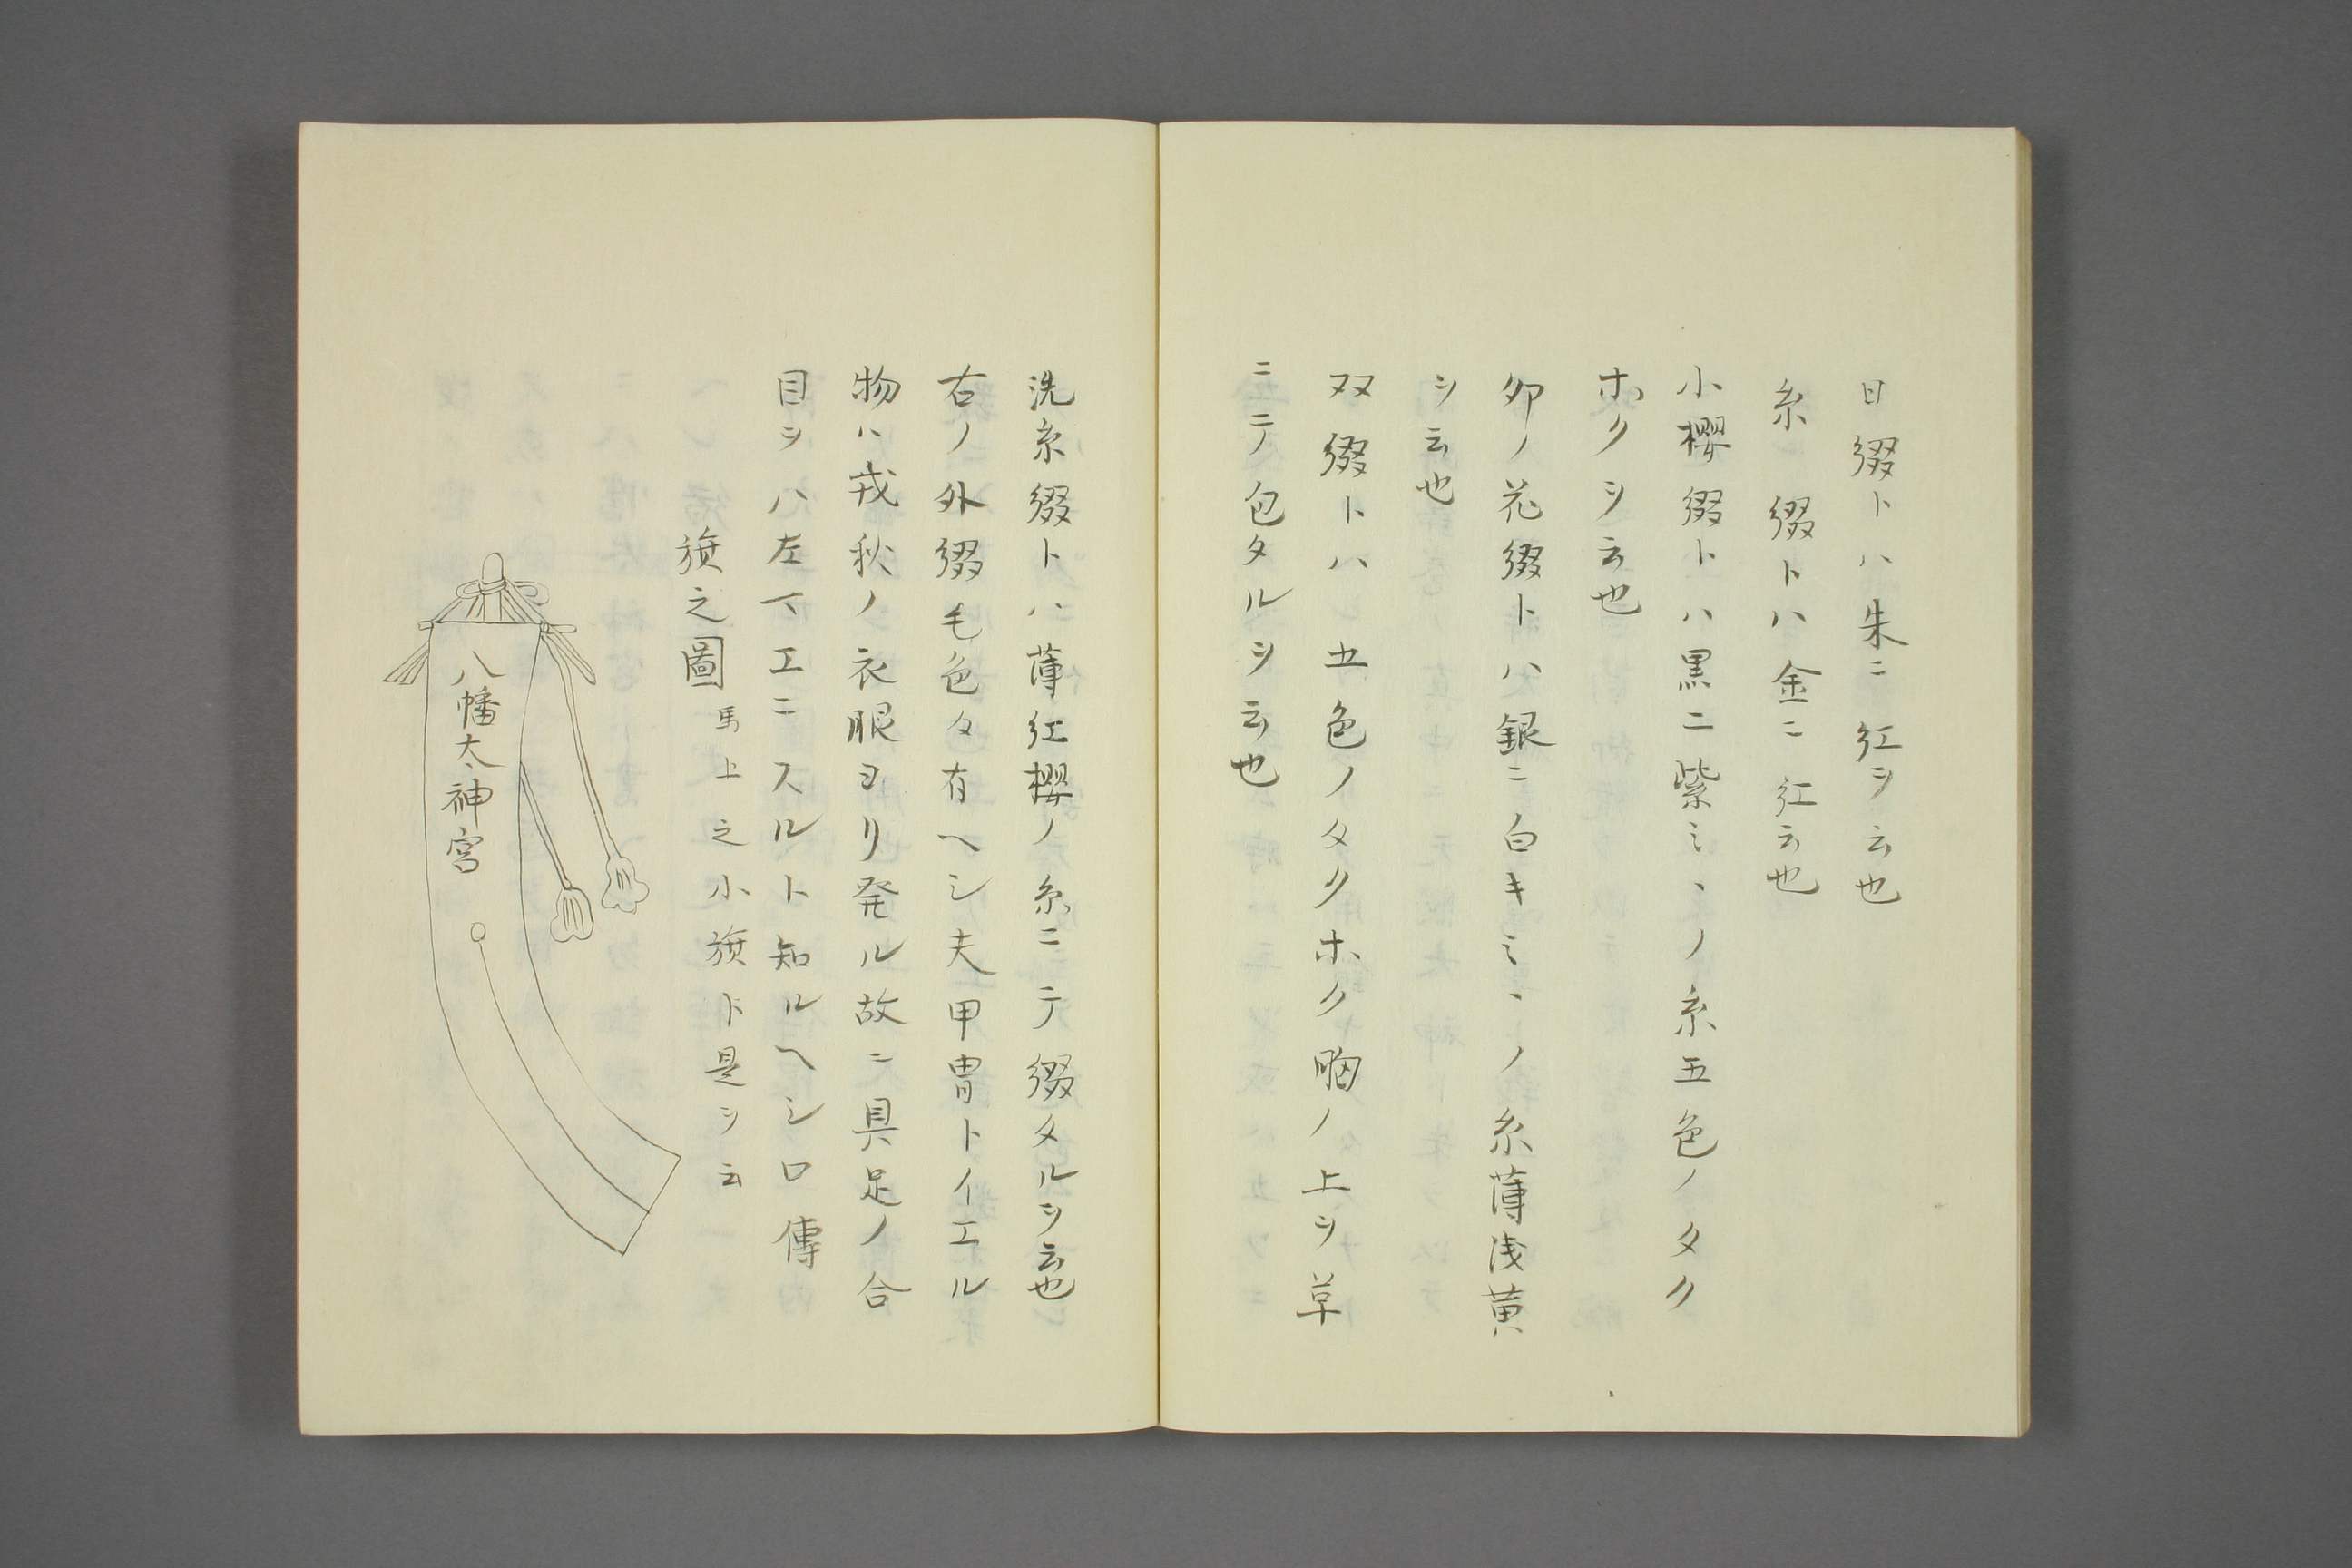 日綴トハ朱ニ紅ヲ云也
糸綴トハ金ニ紅云也
小櫻綴トハ黒ニ紫ミヽノ糸五色ノタク
ホクヲ云也
卯ノ花綴トハ銀ニ白キミヽノ糸薄浅黄
ヲ云也
双綴トハ五色ノタクホク胸ノ上ヲ草
ニテ包タルヲ云也
洗糸綴トハ薄紅櫻ノ糸ニテ綴タルヲ云也
右ノ外綴毛色々有ヘシ夫甲冑トイエル
物ハ戎秋ノ衣服ヨリ発ル故ニ具足ノ合
目ヲハ左下エニスルト知ルヘシ口傳
旗之圖
馬上之小旗ト是ヲ云
八幡太神宮